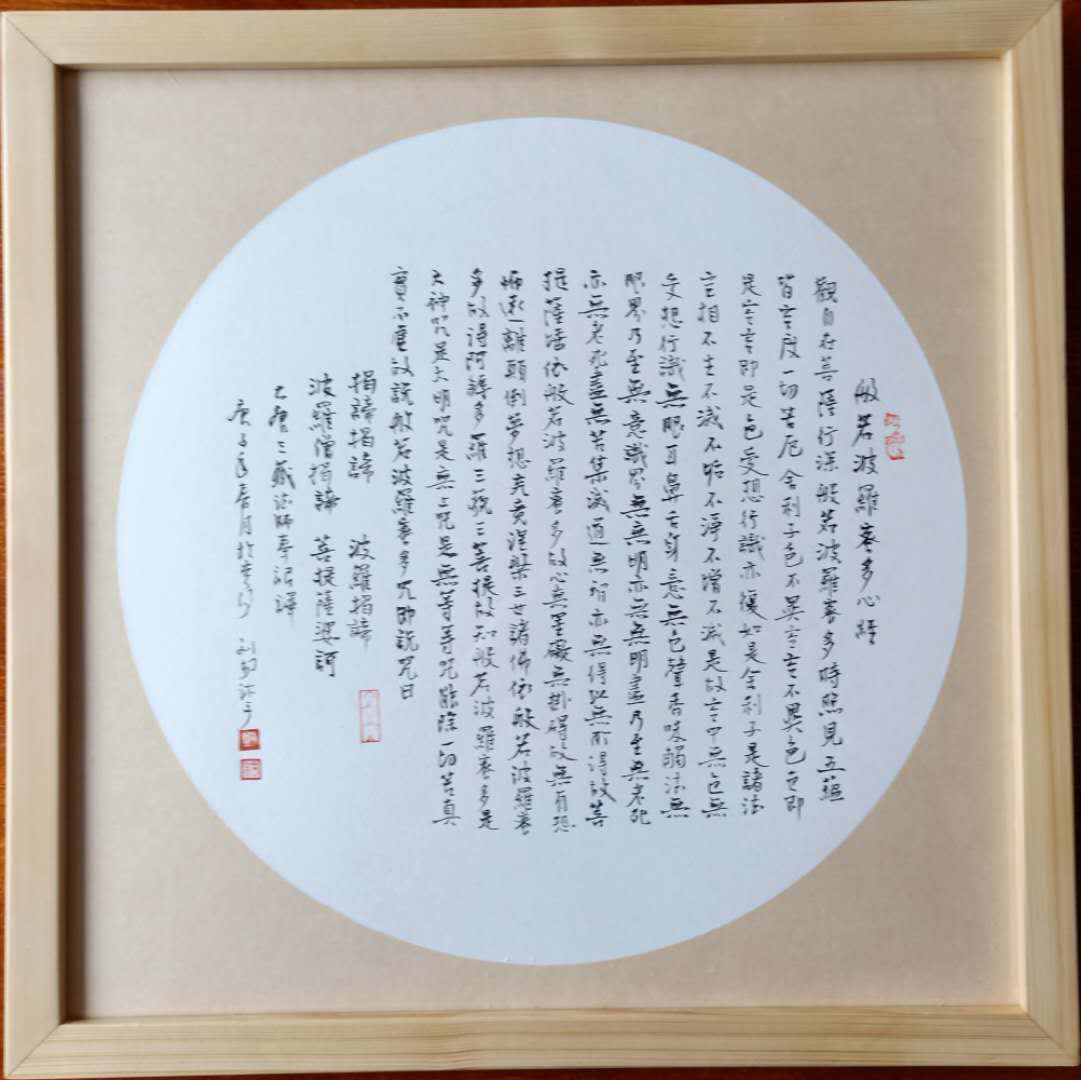 般若波羅蜜多心經
觀自在菩薩行深般若波羅蜜多時照見五蘊
皆空度一切苦厄舍利子色不異空空不異色色即
是空空即是色受想行識亦復如是舍利子是諸法
空相不生不滅不垢不淨不增不減是故空中無色無
受想行識無眼耳鼻舌身意無色聲香味觸法無
眼界乃至無意識界無無明亦無無明盡乃至無老死
亦無老死盡無苦集滅道無智亦無得以無所得故菩
提薩埵依般若波羅蜜多故心無罣礙無掛碍故無有恐
怖遠離顛倒夢想究竟涅槃三世諸佛依般若波羅蜜
多故得阿耨多羅三藐三菩提故知般若波羅蜜多是
大神咒是大明咒是無上咒是無等等咒能除一切苦真
實不虛故說般若波羅蜜多咒即說咒曰
揭諦揭諦 波羅揭諦
波羅僧揭諦 菩提薩婆訶
三藏法師奉詔譯
庚子年春月於 刘